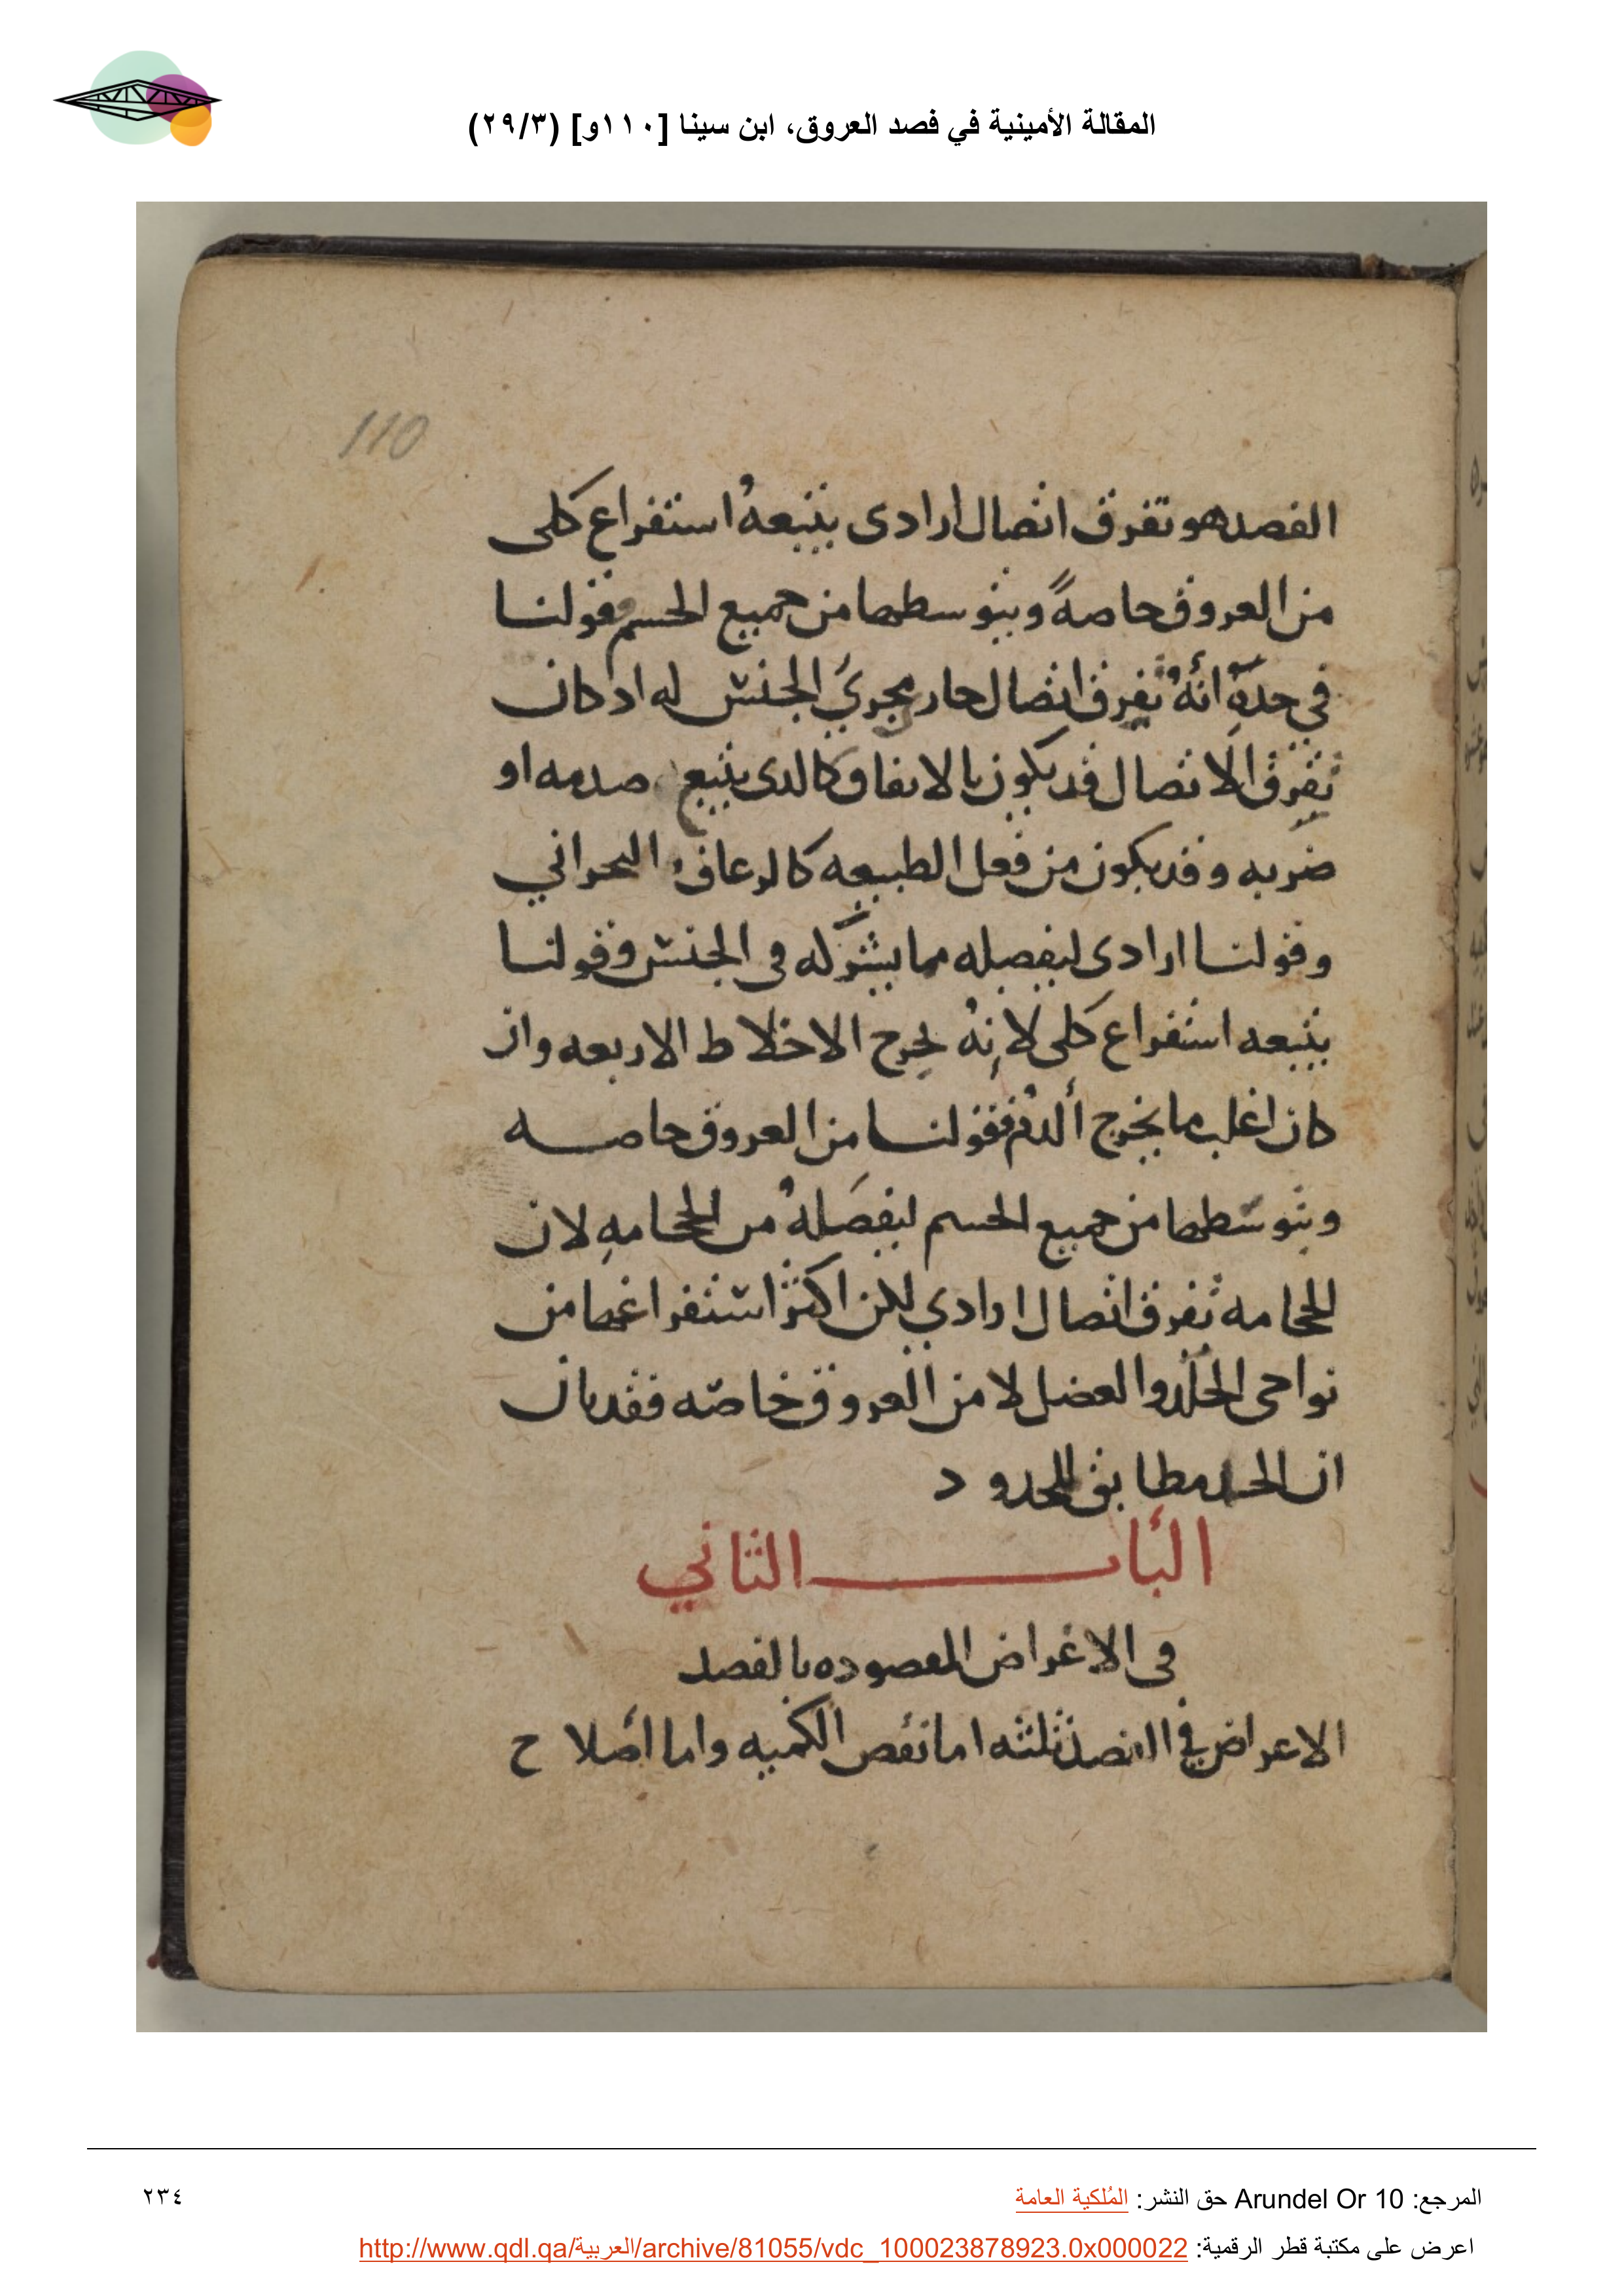 المقالة الأمينية في فصد العروق، ابن سينا [١١٠و] (٢٩/٣)
110
الفصد هو تفرق اتصال ارادى يتبعهُ استفراع كلى
من العروق حاصةً وبتوسطها من جميع الحسم فقولنا
في حدهِ انهُ تفرق اتصال حار مجرىَ الجنس له اد كان
تفرق الاتصال قد يكون بالاتفاق كالدى يتبع صدمه او
ضربه وقد يكون من فعل الطبيعه كالرعاف البحراني
وقولنا ارادى ليفصله مما يشركه فى الجنس وقولنا
يتبعه استفراع كلى لانهُ يخرج الاخلاط الاربعه وان
كان اغلب ما يخرج ألدم فقولنا من العروق حاصه
وبتوسطها من جميع الحسم ليفصَلهُ من الححامهِ لان
الححامه تفرق اتصال ارادي لكن اكثر استفراغها من
نواحى الجلد والعضل لا من العروق خاصّه فقد بان
ان الحد مطابق للمحدود
الباب الثاني
فى الاغراض المقصوده بالفصد
الاعراض في الفصد ثلثه اما نقص الكميه واما أصلاح
المرجع: Arundel Or 10 حق النشر: المُلكية العامة
٢٣٤
اعرض على مكتبة قطر الرقمية: http://www.qdl.qa/العربية/archive/81055/vdc_100023878923.0x000022